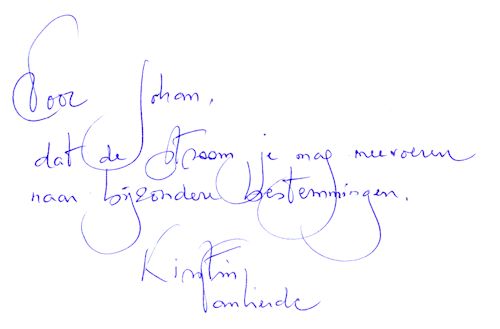 Voor Johan,
dat de stroom je mag meevoeren
naar bijzondere bestemmingen.
Kirstin
Vanlierde